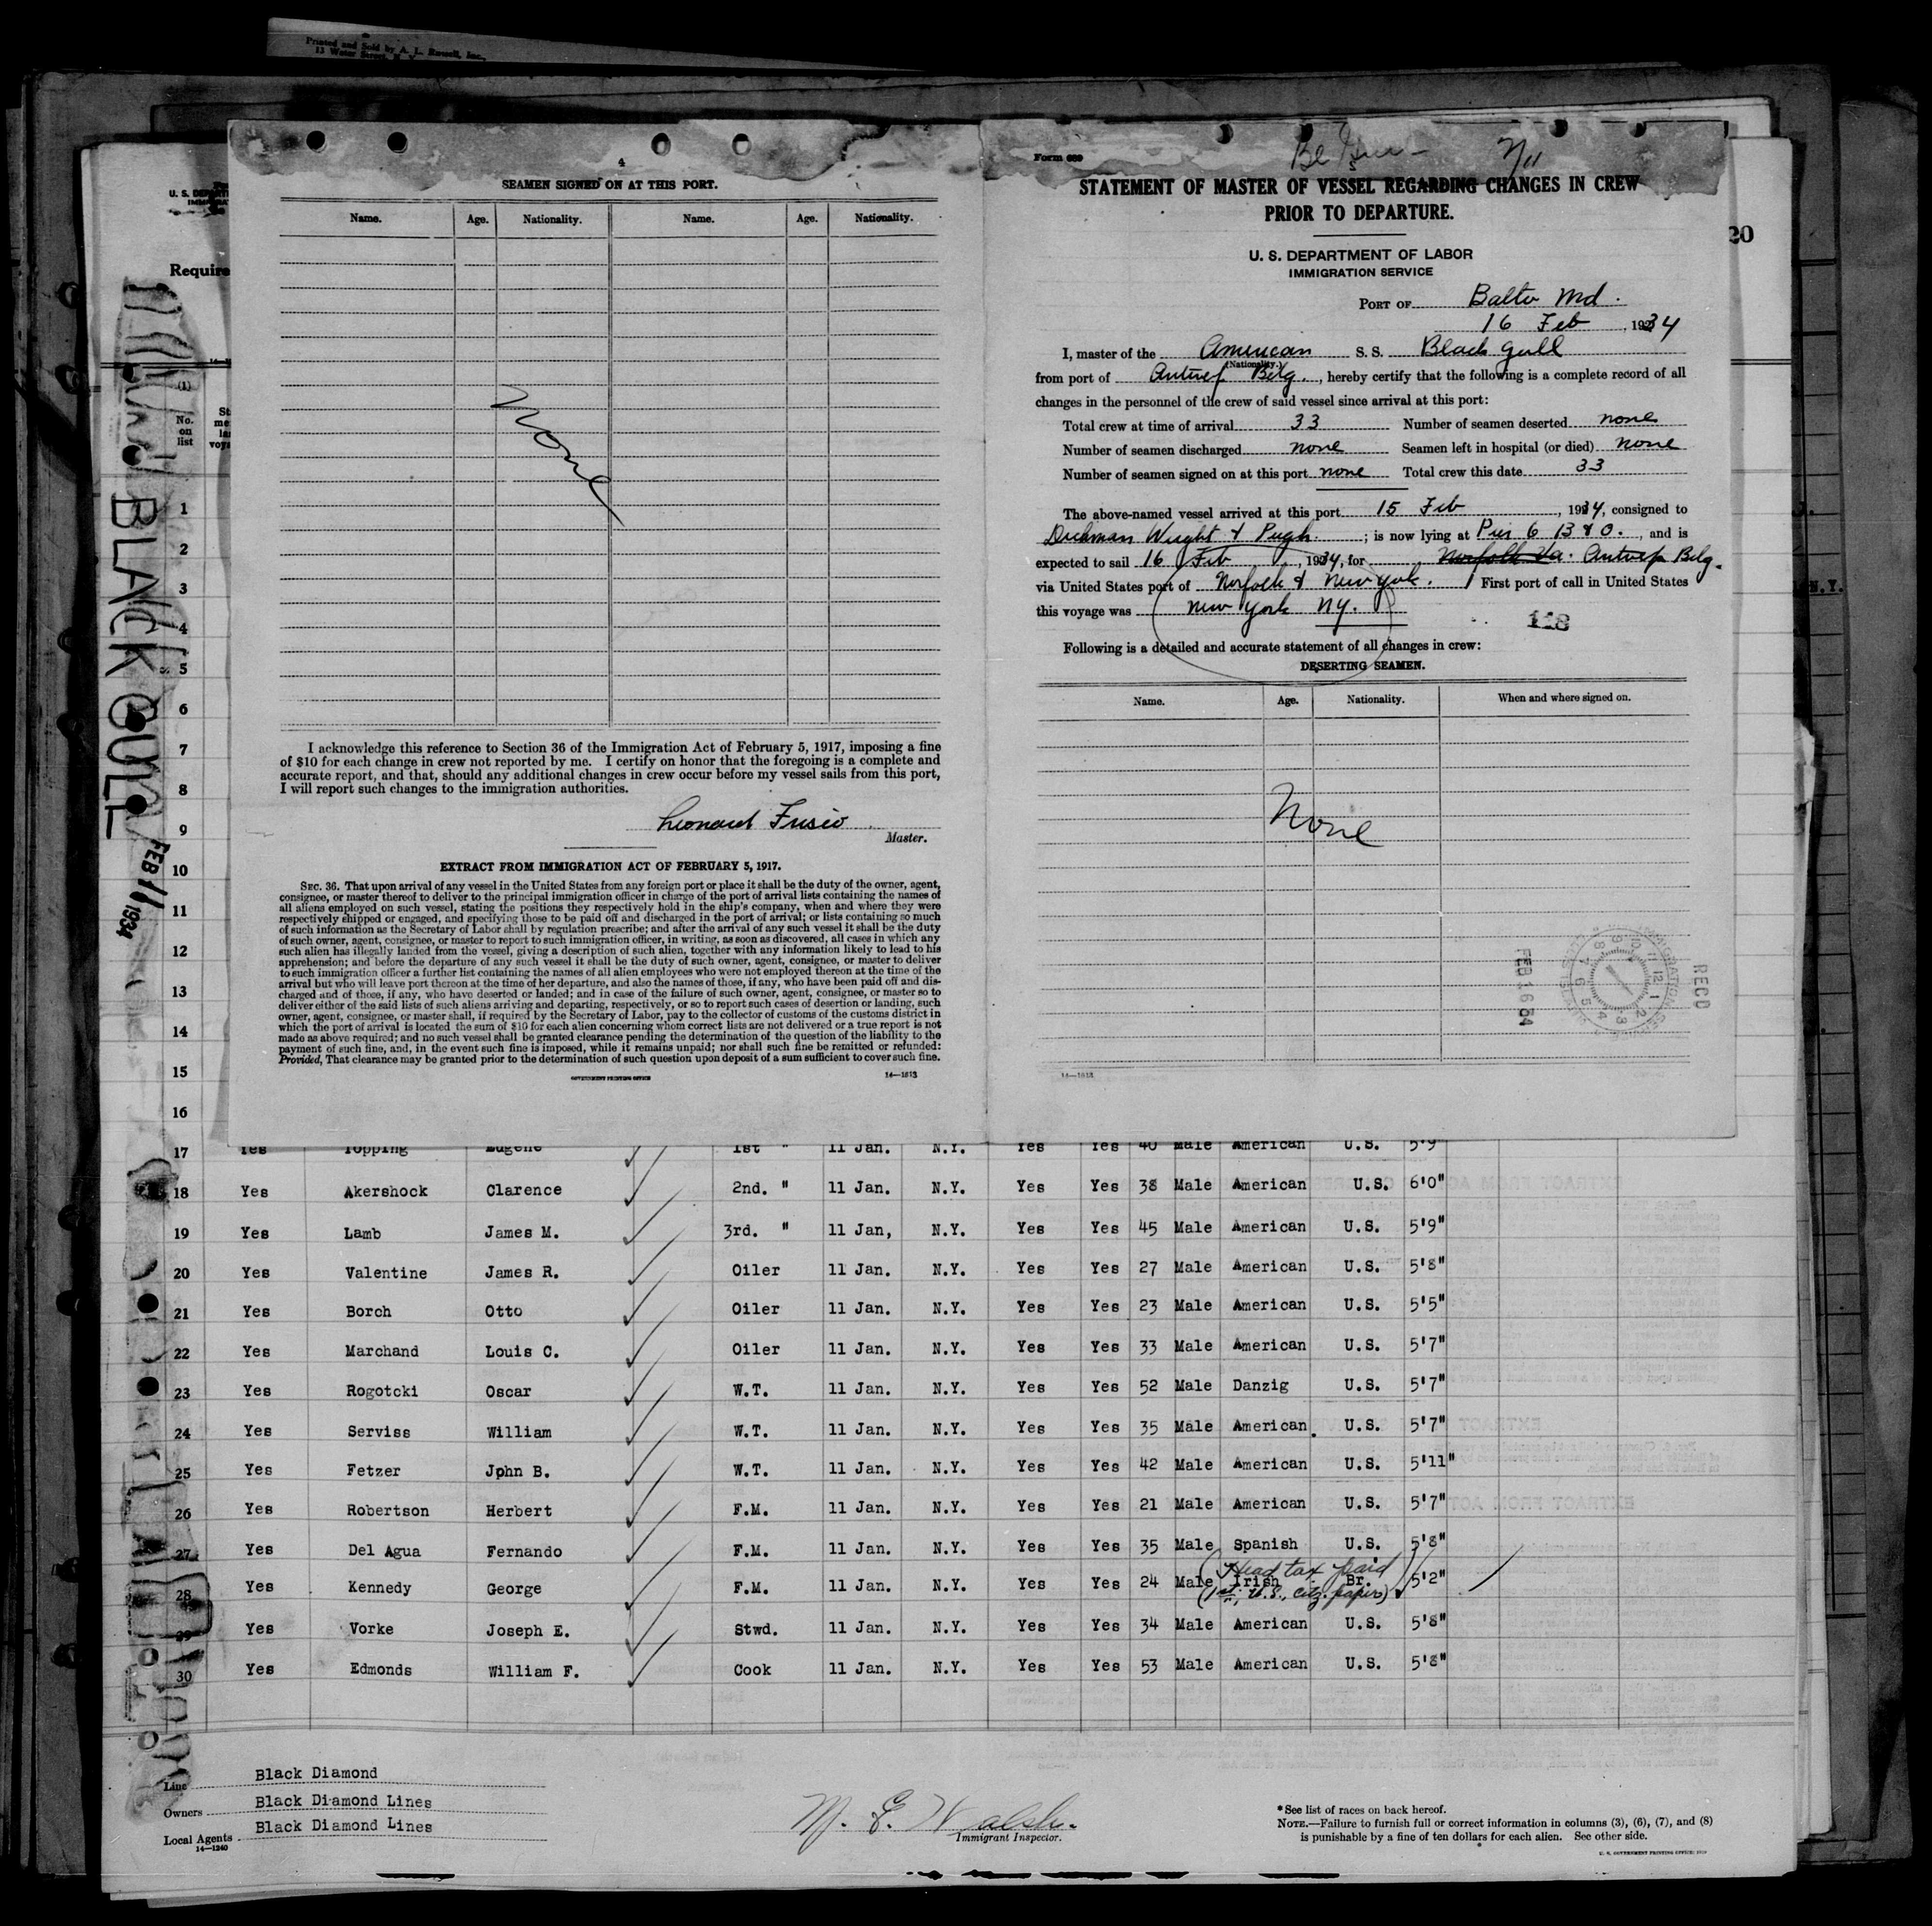 Printed and Sold by A. L. Russell, Inc.,
13 Water Street, N. Y.
4
SEAMEN SIGNED ON AT THIS PORT.
Name. Age. Nationality. Name. Age. Nationality.
None
I acknowledge this reference to Section 36 of the Immigration Act of February 5, 1917, imposing a fine
of $10 for each change in crew not reported by me. I certify on honor that the foregoing is a complete and
accurate report, and that, should any additional changes in crew occur before my vessel sails from this port,
I will report such changes to the immigration authorities.
Leonard
Master.
EXTRACT FROM IMMIGRATION ACT OF FEBRUARY 5, 1917.
SEC. 36. That upon arrival of any vessel in the United States from any foreign port or place it shall be the duty of the owner, agent,
consignee, or master thereof to deliver to the principal immigration officer in charge of the port of arrival lists containing the names of
all aliens employed on such vessel, stating the positions they respectively hold in the ship's company, when and where they were
respectively shipped or engaged, and specifying those to be paid off and discharged in the port of arrival; or lists containing so much
of such information as the Secretary of Labor shall by regulation prescribe; and after the arrival of any such vessel it shall be the duty
of such owner, agent, consignee, or master to report to such immigration officer, in writing, as soon as discovered, all cases in which any
such alien has illegally landed from the vessel, giving a description of such alien, together with any information likely to lead to his
apprehension; and before the departure of any such vessel it shall be the duty of such owner, agent, consignee, or master to deliver
to such immigration officer a further list containing the names of all alien employees who were not employed thereon at the time of the
arrival but who will leave port thereon at the time of her departure, and also the names of those, if any, who have been paid off and dis-
charged and of those, if any, who have deserted or landed; and in case of the failure of such owner, agent, consignee, or master so to
deliver either of the said lists of such aliens arriving and departing, respectively, or so to report such cases of desertion or landing, such
owner, agent, consignee, or master shall, if required by the Secretary of Labor, pay to the collector of customs of the customs district in
which the port of arrival is located the sum of $10 for each alien concerning whom correct lists are not delivered or a true report is not
made as above required; and no such vessel shall be granted clearance pending the determination of the question of the liability to the
payment of such fine, and, in the event such fine is imposed, while it remains unpaid; nor shall such fine be remitted or refunded:
Provided, That clearance may be granted prior to the determination of such question upon deposit of a sum sufficient to cover such fine.
GOVERNMENT PRINTING OFFICE 14—1613
Form 689
STATEMENT OF MASTER OF VESSEL REGARDING CHANGES IN CREW
PRIOR TO DEPARTURE.
U. S. DEPARTMENT OF LABOR
IMMIGRATION SERVICE
PORT OF Balto Md.
16 Feb, 1934
I, master of the American S. S. Black Gull
(Nationality.)
from port of Antwerp Belg., hereby certify that the following is a complete record of all
changes in the personnel of the crew of said vessel since arrival at this port:
Total crew at time of arrival 33 Number of seamen deserted none
Number of seamen discharged none Seamen left in hospital (or died) none
Number of seamen signed on at this port none Total crew this date 33
The above-named vessel arrived at this port 15 Feb, 1934, consigned to
Wright & Pugh.; is now lying at Pier 6 B & O., and is
expected to sail 16 Feb, 1934, for Norfolk Va. Antwerp Belg.
via United States port of Norfolk & New York. First port of call in United States
this voyage was New York NY.
118
Following is a detailed and accurate statement of all changes in crew:
DESERTING SEAMEN.
Name. Age. Nationality. When and where signed on.
None
RECD
FEB 16 34
14—1613
20
N.Y.
U. S. DEPARTM
Require
(1)
No.
on
list
BLACK GULL
FEB 11 1934
1
2
3
4
5
6
7
8
9
10
11
12
13
14
15
16
17 Yes Topping Eugene 1st " 11 Jan. N.Y. Yes Yes 40 Male American U.S. 5'9
18 Yes Akershock Clarence 2nd. " 11 Jan. N.Y. Yes Yes 38 Male American U.S. 6'0"
19 Yes Lamb James M. 3rd. " 11 Jan, N.Y. Yes Yes 45 Male American U.S. 5'9"
20 Yes Valentine James R. Oiler 11 Jan. N.Y. Yes Yes 27 Male American U.S. 5'8"
21 Yes Borch Otto Oiler 11 Jan. N.Y. Yes Yes 23 Male American U.S. 5'5"
22 Yes Marchand Louis C. Oiler 11 Jan. N.Y. Yes Yes 33 Male American U.S. 5'7"
23 Yes Rogotcki Oscar W.T. 11 Jan. N.Y. Yes Yes 52 Male Danzig U.S. 5'7"
24 Yes Serviss William W.T. 11 Jan. N.Y. Yes Yes 35 Male American U.S. 5'7"
25 Yes Fetzer Jphn B. W.T. 11 Jan. N.Y. Yes Yes 42 Male American U.S. 5'11"
26 Yes Robertson Herbert F.M. 11 Jan. N.Y. Yes Yes 21 Male American U.S. 5'7"
27 Yes Del Agua Fernando F.M. 11 Jan. N.Y. Yes Yes 35 Male Spanish U.S. 5'8"
(Head tax paid)
28 Yes Kennedy George F.M. 11 Jan. N.Y. Yes Yes 24 Male Irish Br. 5'2"
(1st, U.S., citz. papers)
29 Yes Vorke Joseph E. Stwd. 11 Jan. N.Y. Yes Yes 34 Male American U.S. 5'8"
30 Yes Edmonds William F. Cook 11 Jan. N.Y. Yes Yes 53 Male American U.S. 5'8"
Line Black Diamond
Owners Black Diamond Lines
Local Agents Black Diamond Lines
14—1240
M. E. Walsh.
Immigrant Inspector.
*See list of races on back hereof.
NOTE.—Failure to furnish full or correct information in columns (3), (6), (7), and (8)
is punishable by a fine of ten dollars for each alien. See other side.
U. S. GOVERNMENT PRINTING OFFICE: